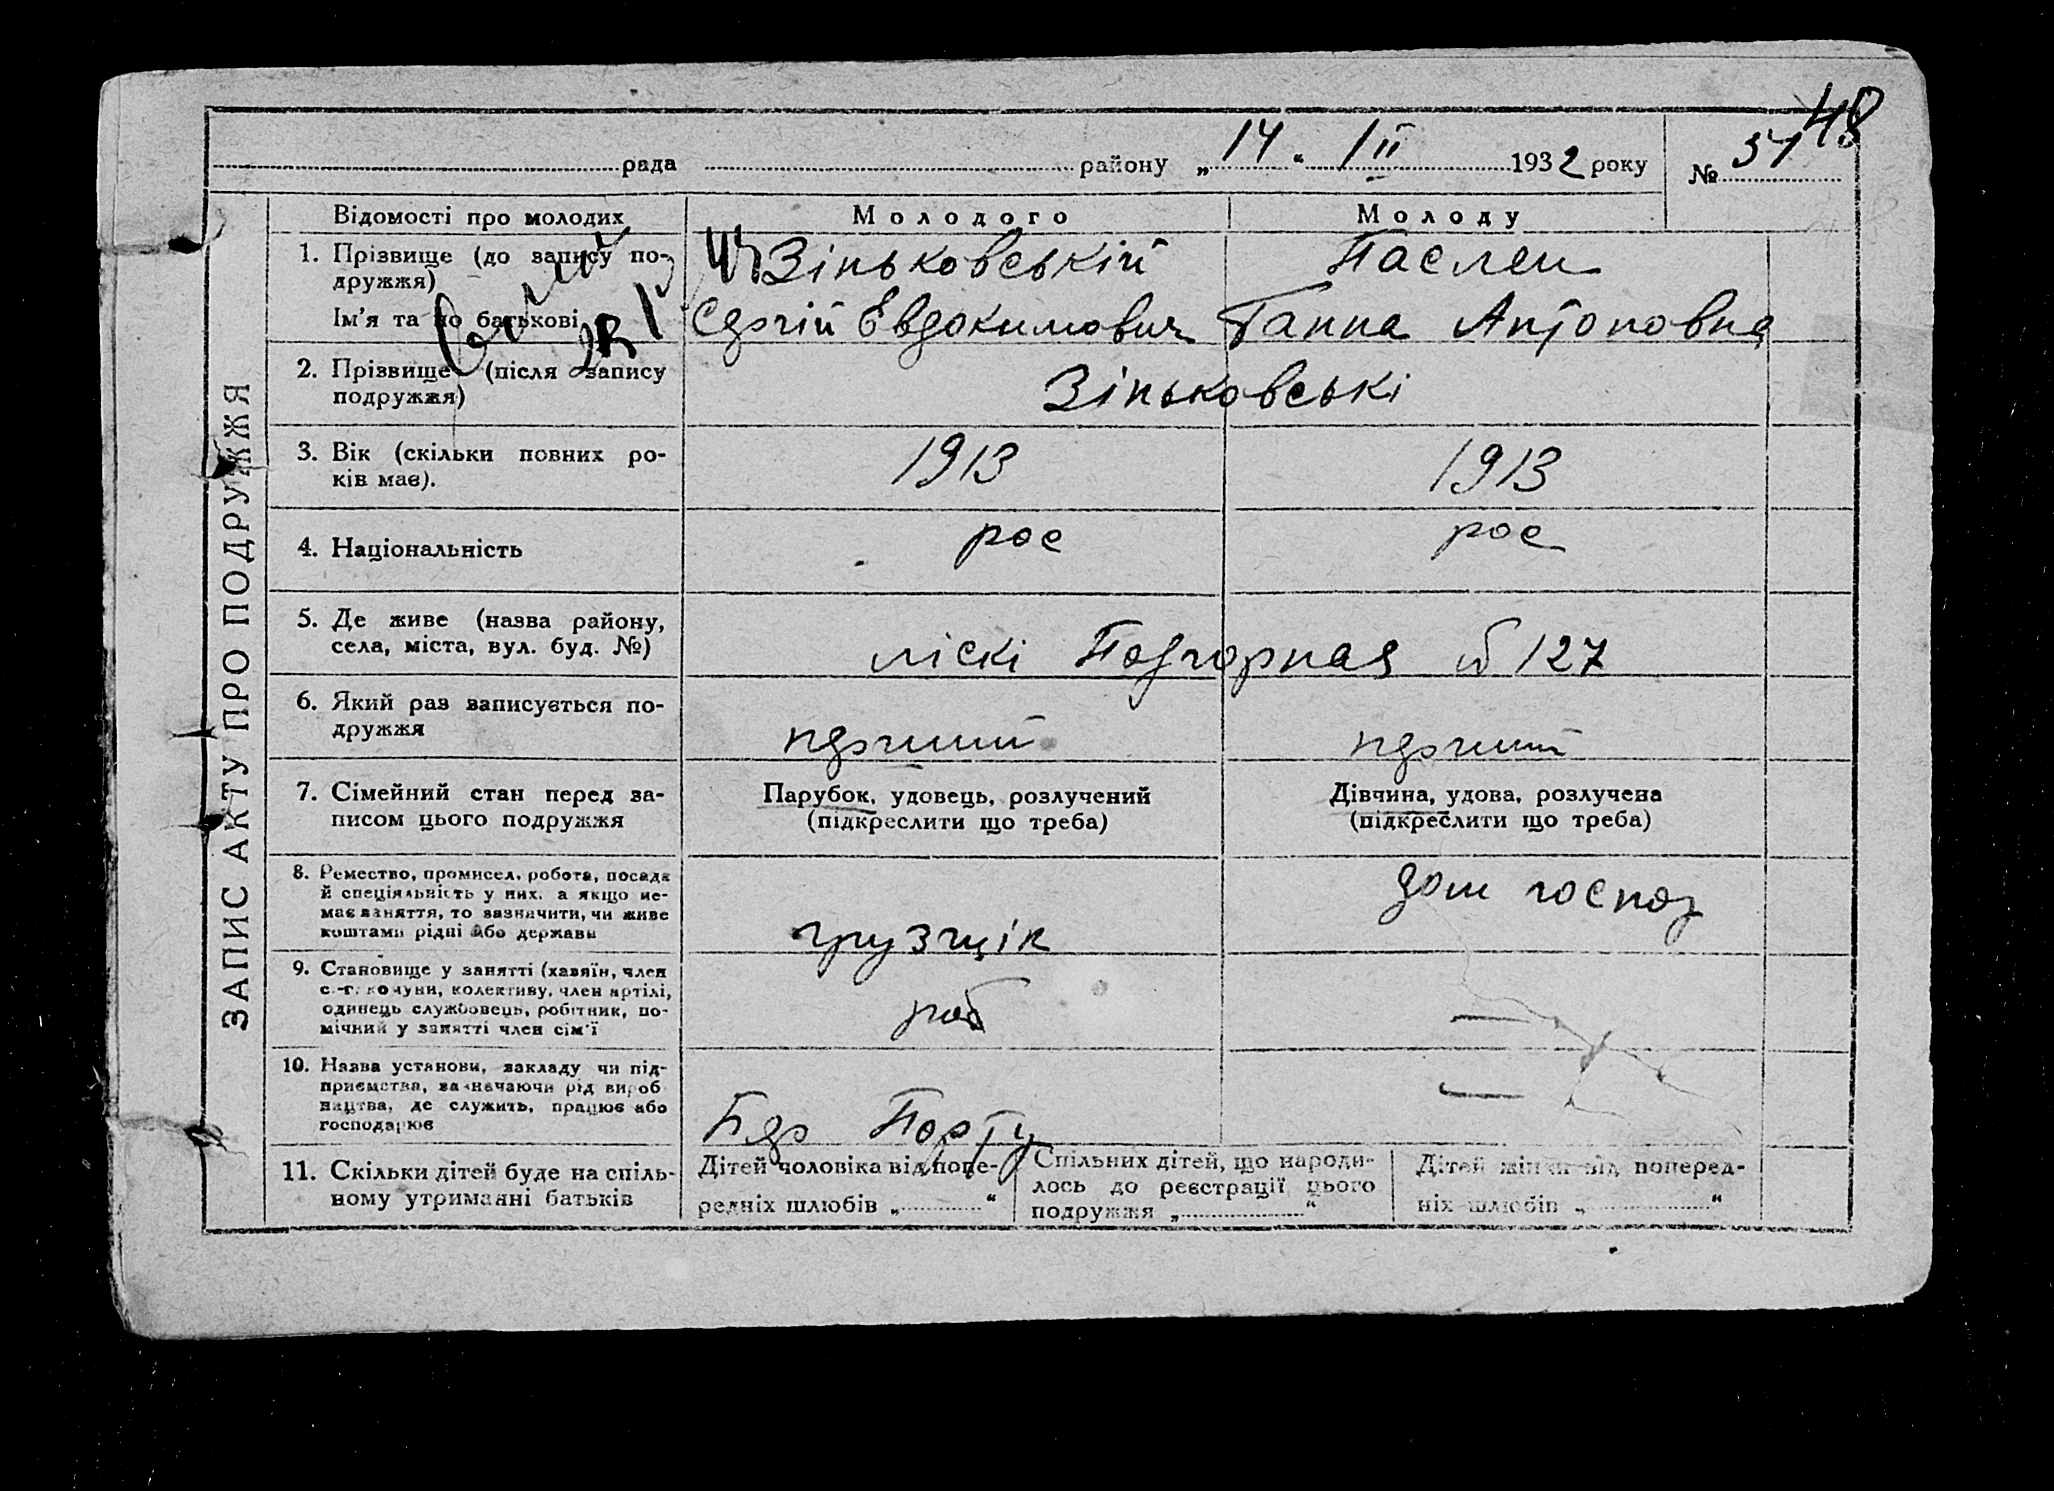 48
рада району „ 14 “ III 1932 року № 51
ЗАПИС АКТУ ПРО ПОДРУЖЖЯ
Відомості про молодих Молодого Молоду
1. Прізвище (до запису по-
дружжя)
Зіньковській Паслен
Ім'я та по батькові
Сергій Евдокимович Ганна Антоновна
2. Прізвище (після запису
подружжя)
Зіньковські
3. Вік (скільки повних ро-
ків має).
1913 1913
4. Національність
рос рос
5. Де живе (назва району,
села, міста, вул. буд. №)
ліскі Подгорная 127
6. Який раз записується по-
дружжя
перший перший
7. Сімейний стан перед за-
писом цього подружжя
Парубок, удовець, розлучений
(підкреслити що треба)
Дівчина, удова, розлучена
(підкреслити що треба)
8. Ремество, промисел, робота, посада
й спеціяльність у них, а якщо не-
має заняття, то зазначити, чи живе
коштами рідні або держави
грузчік дом господ
9. Становище у занятті (хазяїн, член
с.-г. комуни, колективу, член артілі,
одинець службовець, робітник, по-
мічний у занятті член сім'ї
роб —
10. Назва установи, закладу чи під-
приємства, зазначаючи рід вироб
ництва, де служить, працює або
господарює
Порту —
11. Скільки дітей буде на спіль-
ному утриманні батьків
Дітей чоловіка від попе-
редніх шлюбів „ “
Спільних дітей, що народи-
лось до реєстрації цього
подружжя „ “
Дітей жінки від поперед-
ніх шлюбів „ “